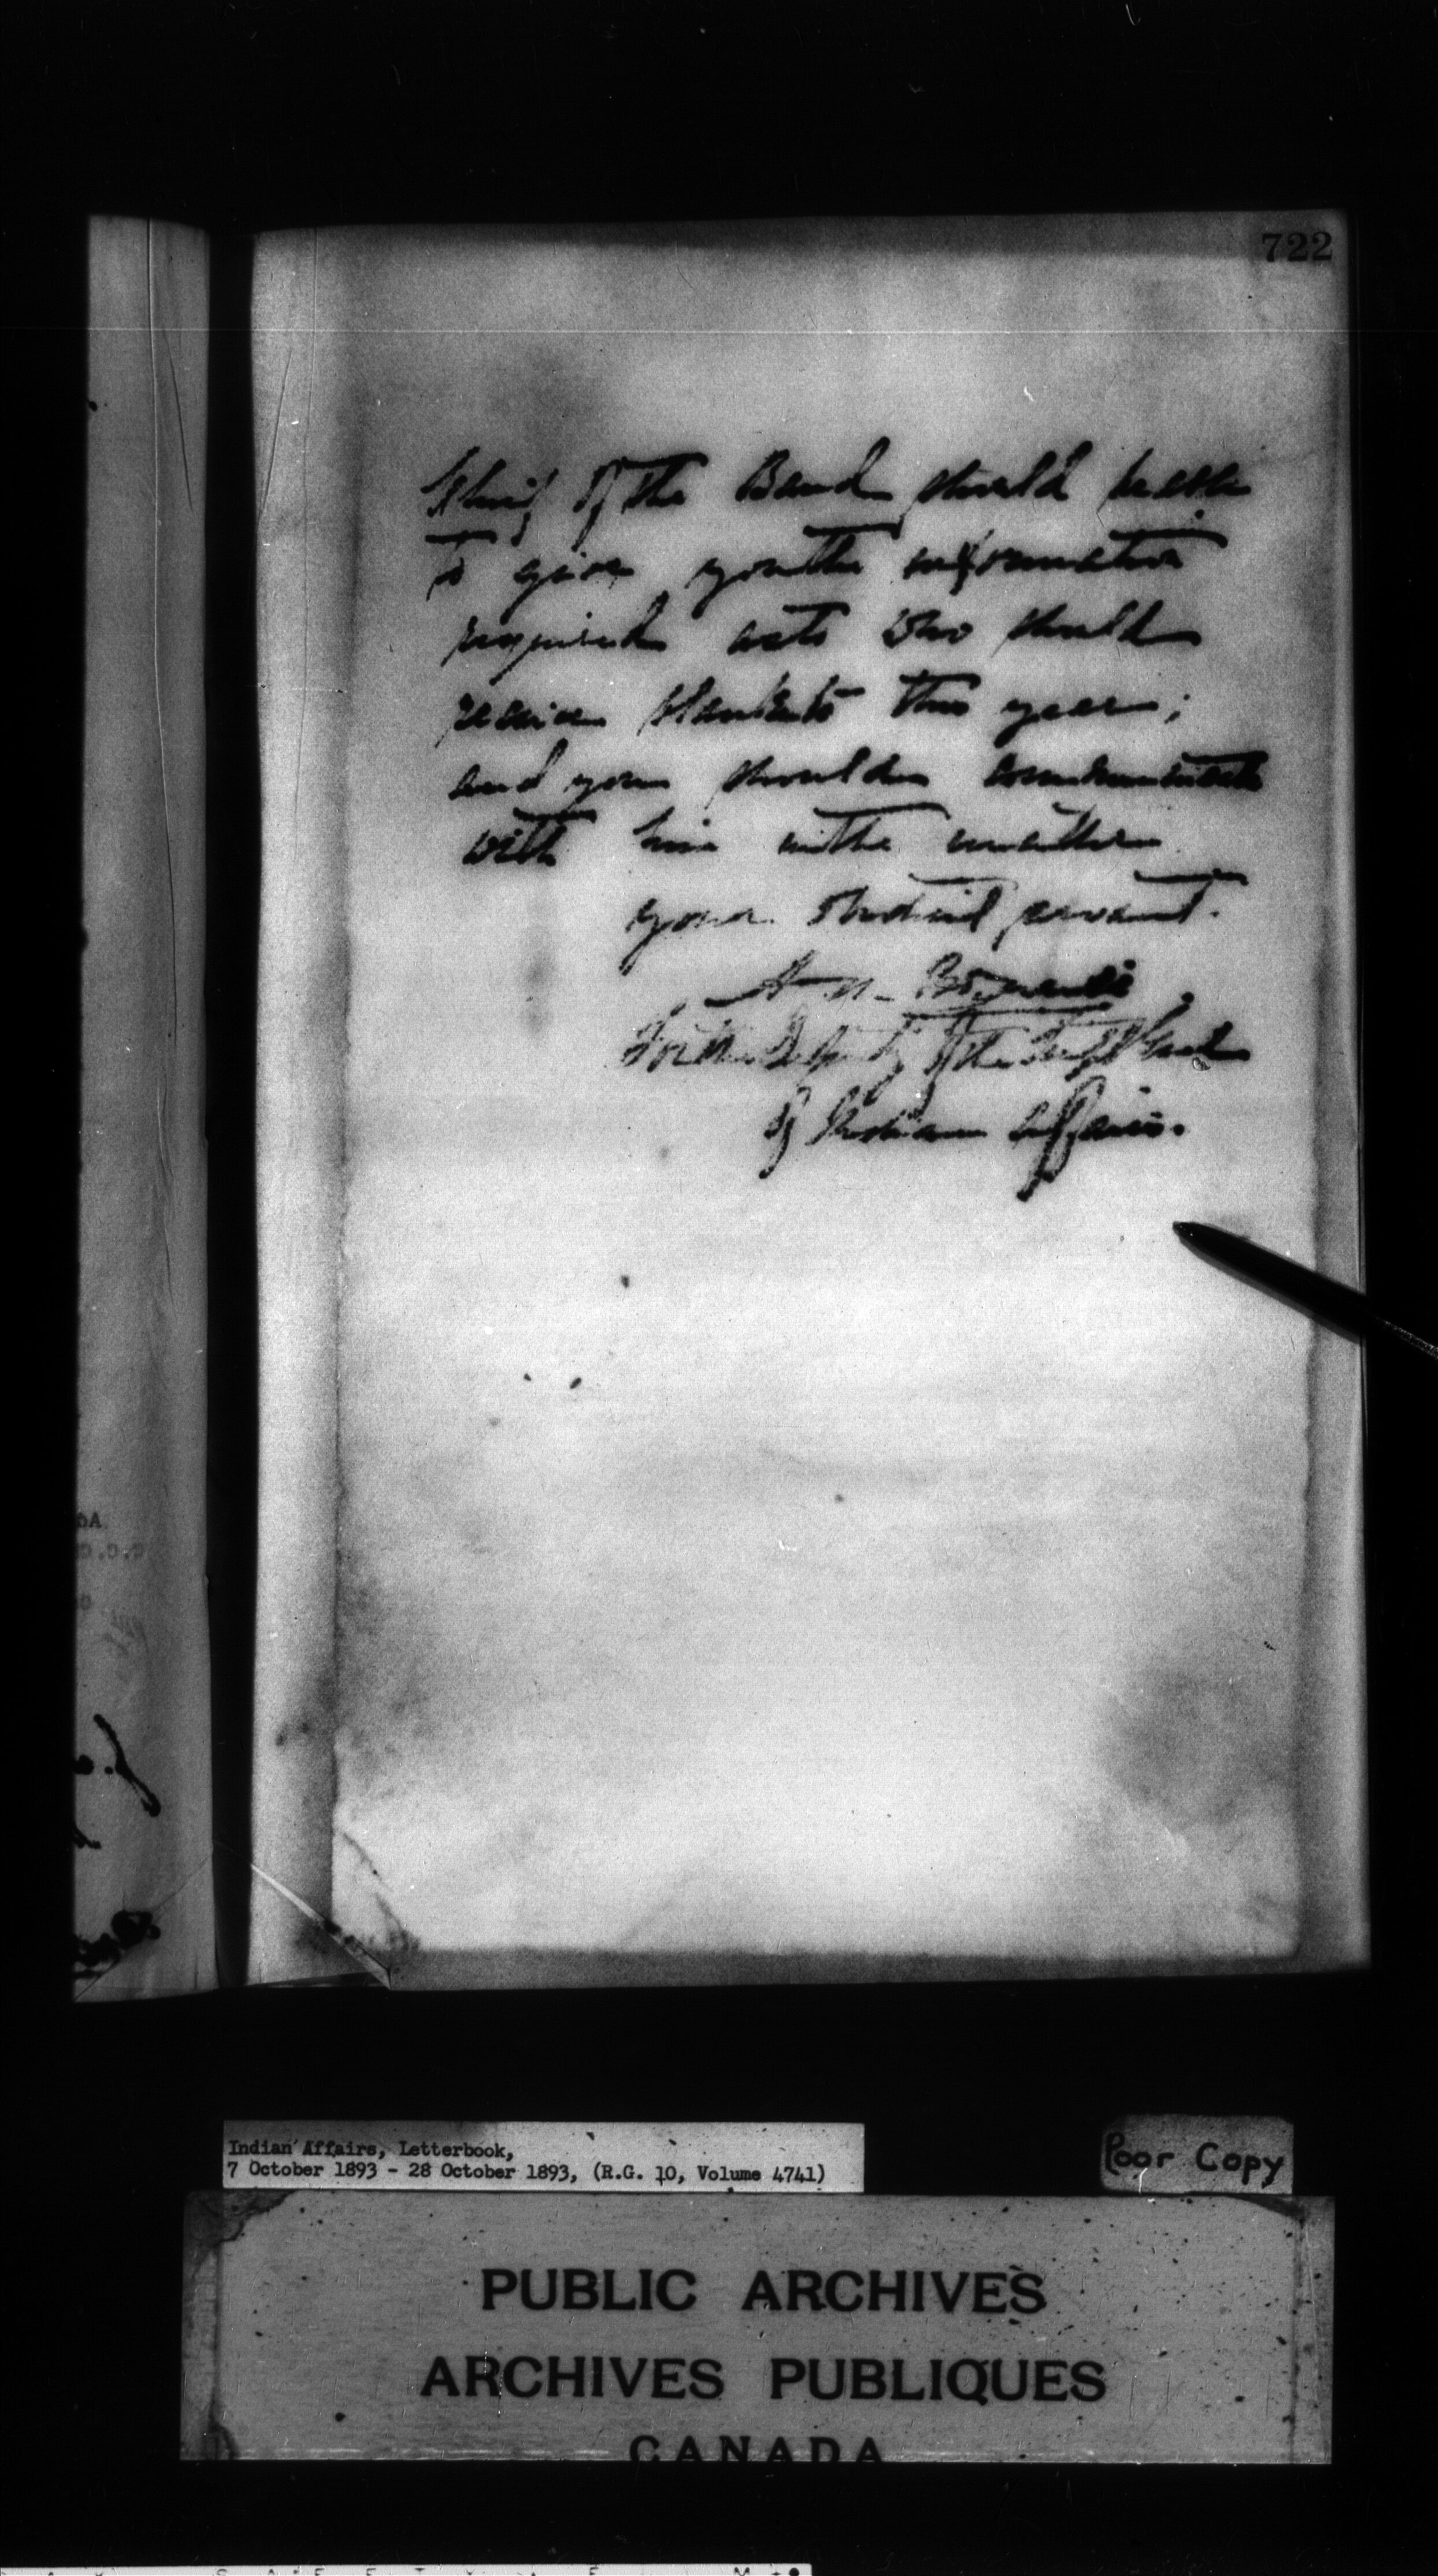 722
Chief of the Band should be able
to give you the information
required as to who should
receive blankets this year;
and you should communicate
with him in the matter
your obedient servant.
For the Deputy of the Supt Genl
of Indian Affairs.
Indian Affairs, Letterbook,
7 October 1893 - 28 October 1893, (R.G. 10, Volume 4741)
Poor Copy
PUBLIC ARCHIVES
ARCHIVES PUBLIQUES
CANADA